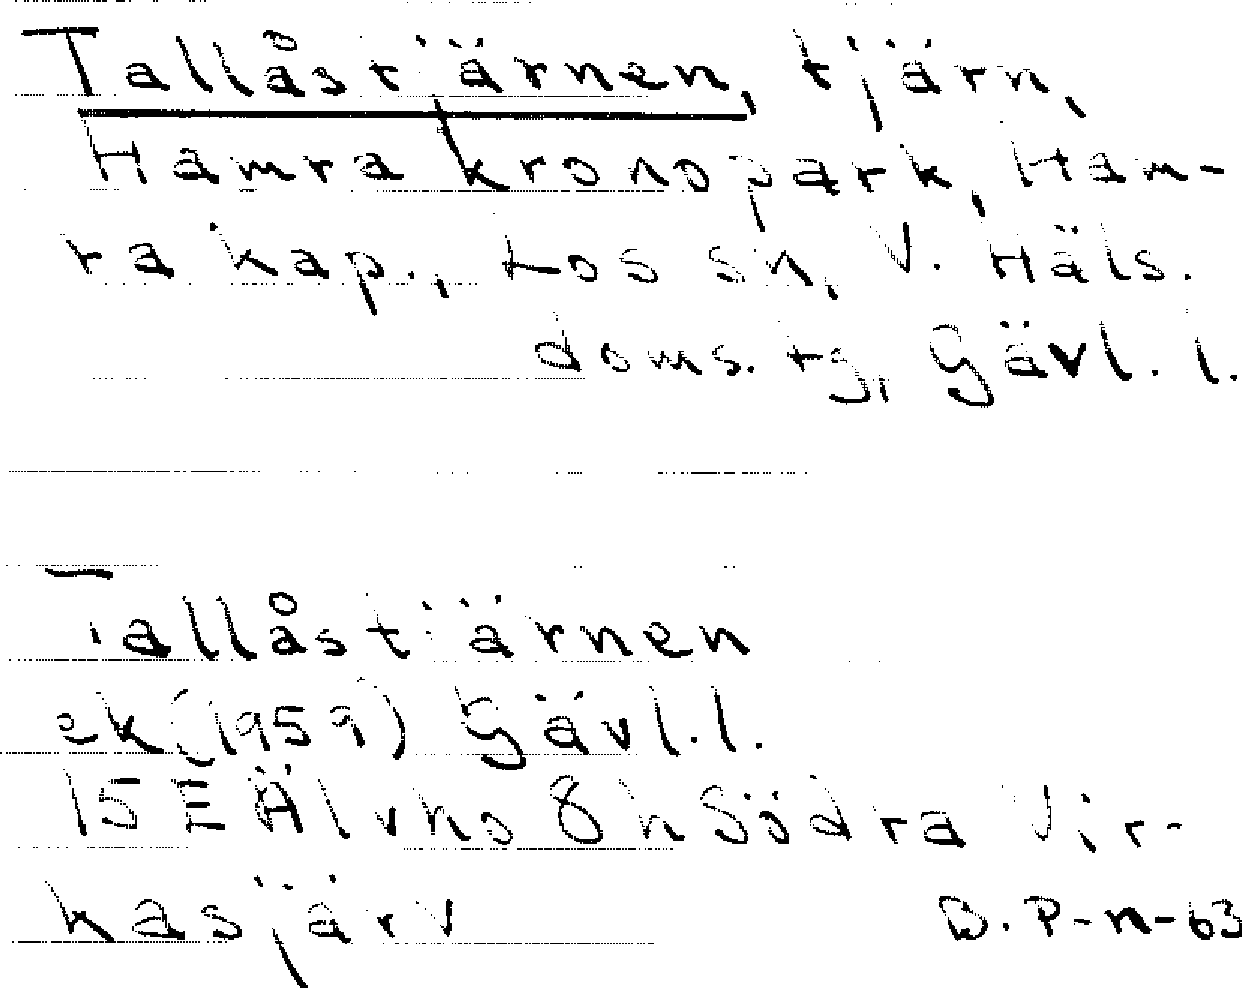 Tallåstjärnen, tjärn,
Hamra kronopark, Ham-
ra kap., Los sn, V. Häls.
doms. tg, Gävl. l.
Tallåstjärnen
ek (1959) Gävl. l.
15E Älvho 8h Södra Vir-
kasjärv
B. P-n-63